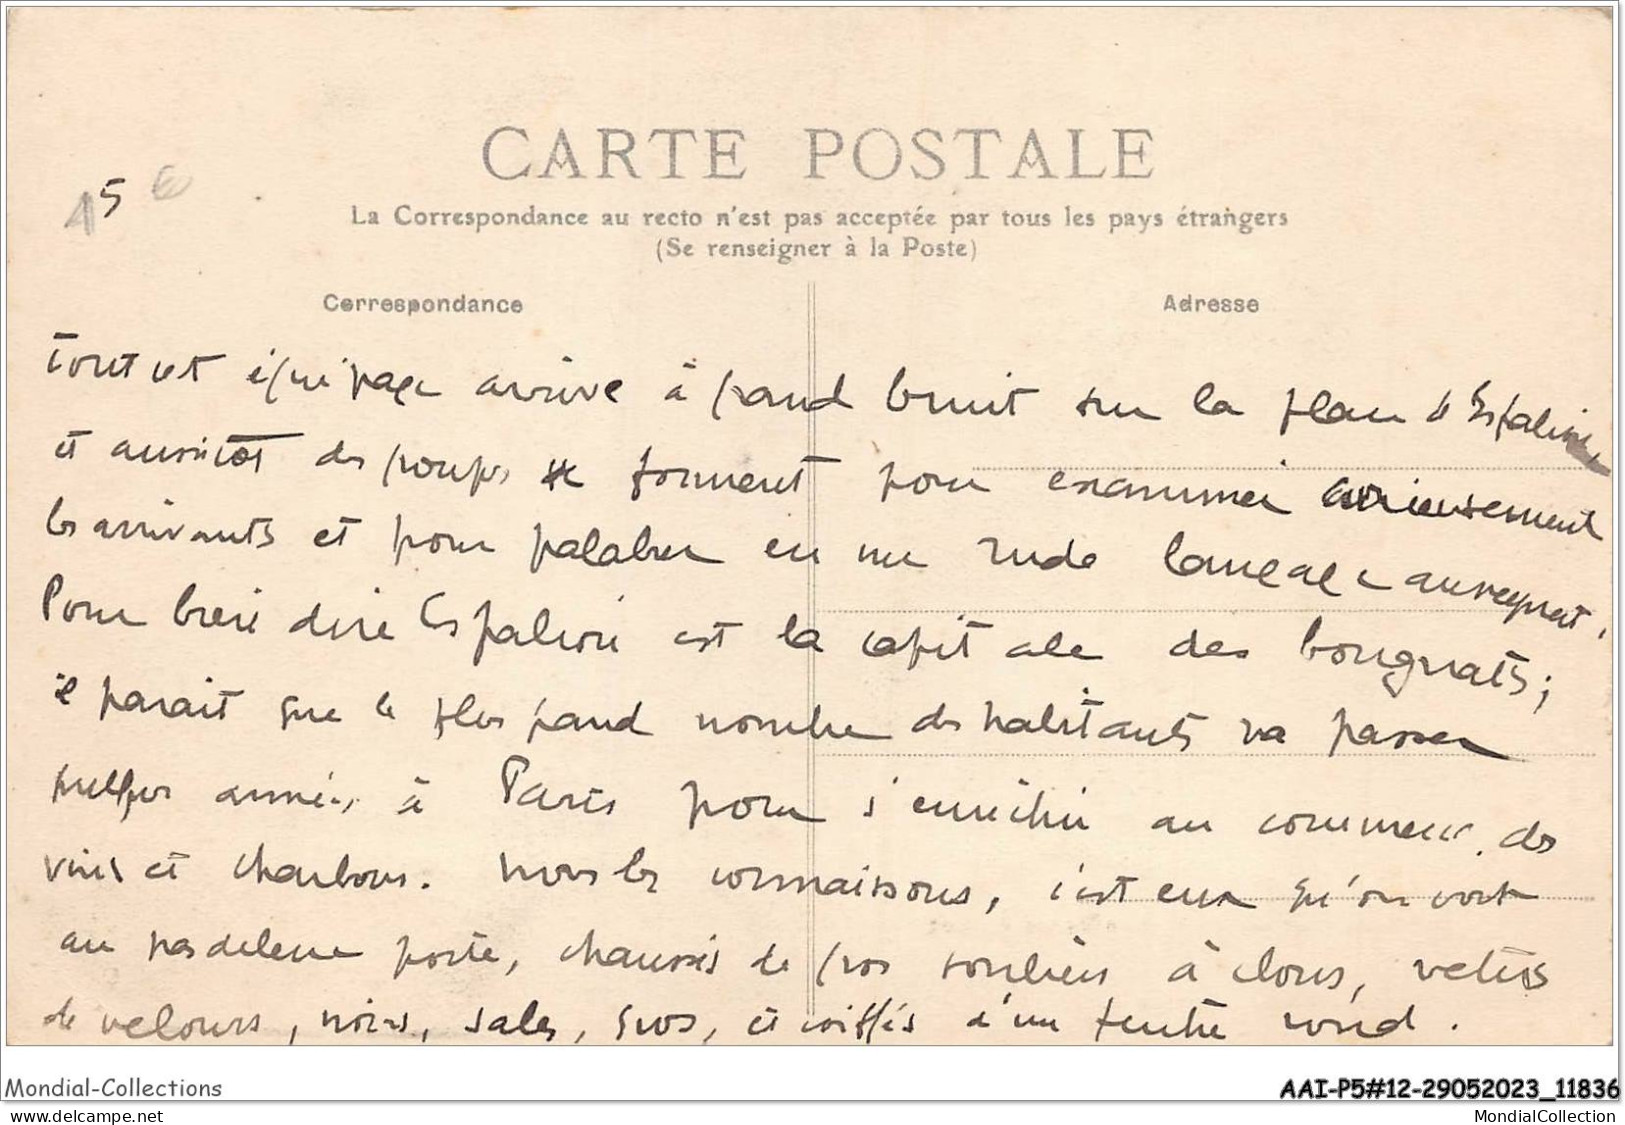 15 €
CARTE POSTALE
La Correspondance au recto n'est pas acceptée par tous les pays étrangers
(Se renseigner à la Poste)
Correspondance
Adresse
Tout cet équipage arrive à grand bruit sur la place d'Espalion,
et aussitôt des groupes se forment pour examiner curieusement
les arrivants et pour palabrer en un rude langage auvergnat.
Pour bien dire Espalion est la capitale des bougnats ;
il parait que le plus grand nombre des habitants va passer
quelques années à Paris pour s'enrichir au commerce des
vins et charbons. Nous les connaissons, c'est eux qu'on voit
au pas de leur porte, chaussés de gros souliers à clous, vetus
de velours, noirs, sales, gros, et coiffés d'un feutre rond.
Mondial-Collections
AAI-P5#12-29052023_11836
www.delcampe.net
MondialCollection